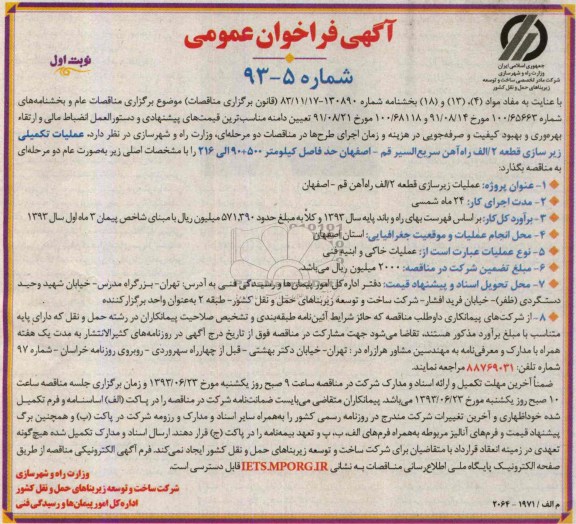 آگهی فراخوان عمومی
شماره ۵-۹۳
نوبت اول
جمهوری اسلامی ایران
وزارت راه و شهرسازی
شرکت مادر تخصصی ساخت و توسعه
زیربناهای حمل و نقل کشور
با عنایت به مفاد مواد (۴)، (۱۳) و (۱۸) بخشنامه شماره ۱۳۰۸۹۰-۸۳/۱۱/۱۷ (قانون برگزاری مناقصات) موضوع برگزاری مناقصات عام و بخشنامه‌های
۱۰۰/۶۵۶۶۳ مورخ ۹۱/۰۸/۱۴ و ۱۰۰/۶۸۱۱۸ مورخ ۹۱/۰۸/۲۱ تعیین دامنه مناسب‌ترین قیمت‌های پیشنهادی و دستورالعمل انضباط مالی و ارتقاء
بهره‌وری و بهبود کیفیت و صرفه‌جویی در هزینه و زمان اجرای طرح‌ها در مناقصات دو مرحله‌ای، وزارت راه و شهرسازی در نظر دارد. عملیات تکمیلی
زیرسازی قطعه ۲/الف راه‌آهن سریع‌السیر قم - اصفهان حد فاصل کیلومتر ۵۰۰+۹۰ الی ۲۱۶ را با مشخصات اصلی زیر به‌صورت عام دو مرحله‌ای
به مناقصه بگذارد:
۱- عنوان پروژه: عملیات زیرسازی قطعه ۲/الف راه‌آهن قم - اصفهان
۲- مدت اجرای کار: ۲۴ ماه شمسی
۳- برآورد کل کار: بر اساس فهرست بهای راه و باند پایه سال ۱۳۹۳ و کلاً به مبلغ حدود ۵۷۱٫۳۹۰ میلیون ریال با مبنای شاخص پیمان ۳ ماه اول سال ۱۳۹۳
۴- محل انجام عملیات و موقعیت جغرافیایی: استان اصفهان
۵- نوع عملیات عبارت است از: عملیات خاکی و ابنیه فنی
۶- مبلغ تضمین شرکت در مناقصه: ۲۰۰۰ میلیون ریال می‌باشد.
۷- محل تحویل اسناد و پیشنهاد قیمت: دفتر اداره کل امور پیمان‌ها و رسیدگی فنی به آدرس: تهران- بزرگراه مدرس- خیابان شهید وحید
دستگردی (ظفر)- خیابان فرید افشار- شرکت ساخت و توسعه زیربناهای حمل و نقل کشور- طبقه ۲ به‌عنوان واحد برگزار کننده
۸- از شرکت‌های پیمانکاری داوطلب مناقصه که حائز شرایط آئین‌نامه طبقه‌بندی و تشخیص صلاحیت پیمانکاران در رشته حمل و نقل که دارای پایه
متناسب با مبلغ برآورد مذکور هستند، تقاضا می‌شود جهت مشارکت در مناقصه فوق از تاریخ درج آگهی در روزنامه‌های کثیرالانتشار به مدت یک هفته
همراه با مدارک و معرفی‌نامه به مهندسین مشاور هرازراه در: تهران- خیابان دکتر بهشتی - قبل از چهارراه سهروردی - روبروی روزنامه خراسان - شماره ۹۷
شماره تلفن: ۸۸۷۶۹۰۳۱ مراجعه نمایند.
ضمناً آخرین مهلت تکمیل و ارائه اسناد و مدارک شرکت در مناقصه ساعت ۹ صبح روز یکشنبه مورخ ۱۳۹۳/۰۶/۲۳ و زمان برگزاری جلسه مناقصه ساعت
۱۰ صبح روز یکشنبه مورخ ۱۳۹۳/۰۶/۲۳ می‌باشد. پیمانکاران متقاضی می‌بایست ضمانت‌نامه شرکت در مناقصه را در پاکت (الف) اساسنامه و فرم تکمیل
شده خوداظهاری و آخرین تغییرات شرکت مندرج در روزنامه رسمی کشور را به‌همراه سایر اسناد و مدارک و رزومه شرکت در پاکت (ب) و همچنین برگ
پیشنهاد قیمت و فرم‌های آنالیز مربوطه به‌همراه فرم‌های الف، ب، پ و تعهد بیمه‌نامه را در پاکت (ج) قرار دهند. ارسال اسناد و مدارک تکمیل شده هیچ‌گونه
تعهدی در زمینه انعقاد قرارداد با متقاضیان برای شرکت ساخت و توسعه زیربناهای حمل و نقل کشور ایجاد نمی‌کند. فرم آگهی الکترونیکی مناقصه از طریق
صفحه الکترونیک پایگاه ملی اطلاع‌رسانی مناقصات به نشانی IETS.MPORG.IR قابل دسترسی است.
وزارت راه و شهرسازی
شرکت ساخت و توسعه زیربناهای حمل و نقل کشور
اداره کل امور پیمان‌ها و رسیدگی فنی
م الف / ۱۹۷۱ - ۲۰۶۴